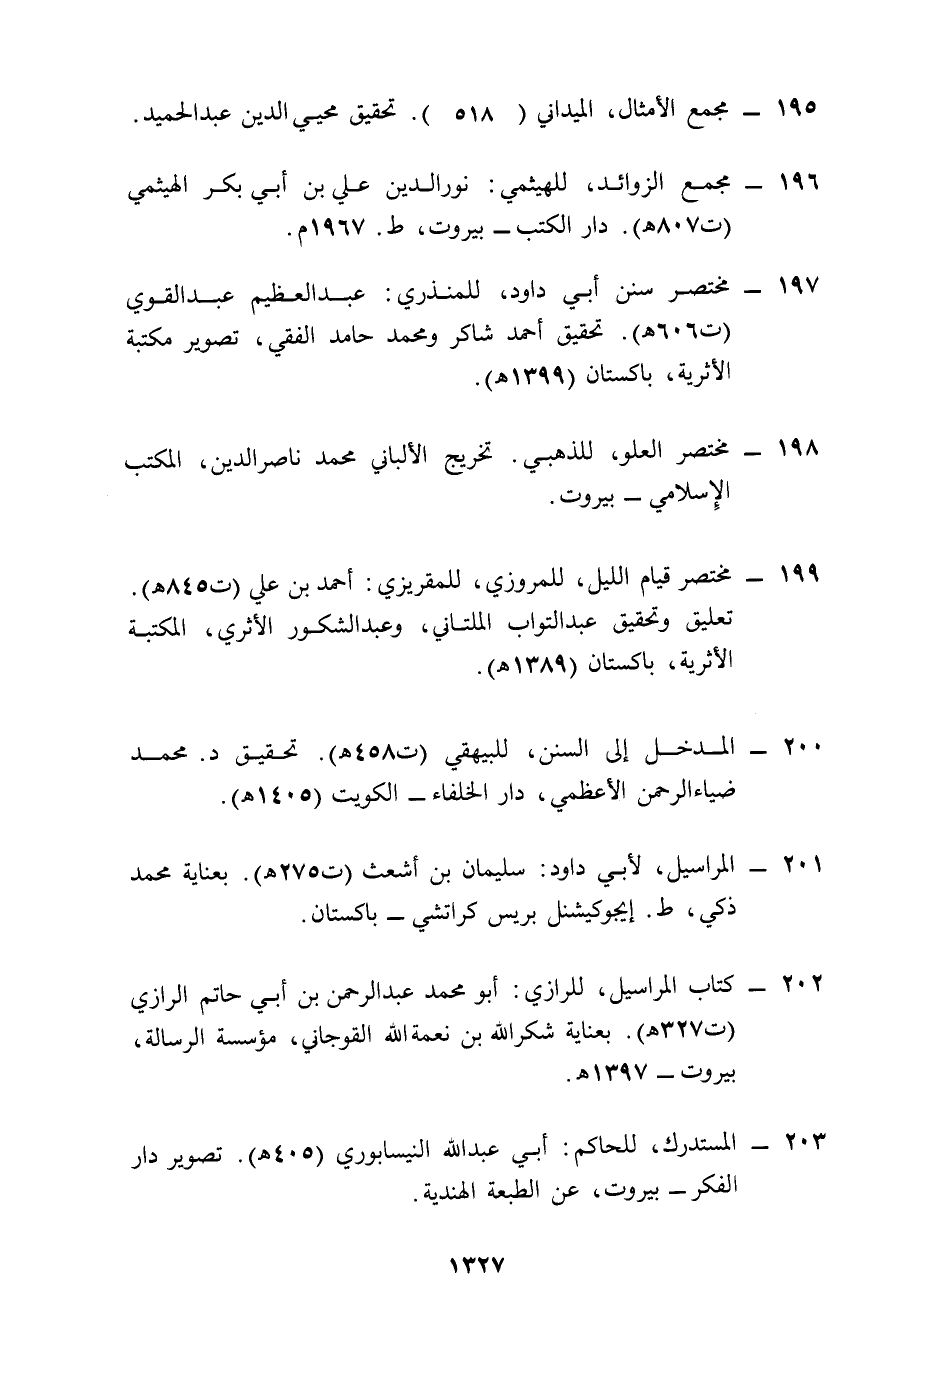 ١٩٥ ـ مجمع الأمثال، الميداني ( ٥١٨ ). تحقيق محيي الدين عبدالحميد.
١٩٦ ـ مجمع الزوائد، للهيثمي: نورالدين علي بن أبي بكر الهيثمي
(ت٨٠٧هـ). دار الكتب ـ بيروت، ط. ١٩٦٧م.
١٩٧ ـ مختصر سنن أبي داود، للمنذري: عبدالعظيم عبدالقوي
(ت٦٠٦هـ). تحقيق أحمد شاكر ومحمد حامد الفقي، تصوير مكتبة
الأثرية، باكستان (١٣٩٩هـ).
١٩٨ ـ مختصر العلو، للذهبي. تخريج الألباني محمد ناصرالدين، المكتب
الإسلامي ـ بيروت.
١٩٩ ـ مختصر قيام الليل، للمروزي، للمقريزي: أحمد بن علي (ت٨٤٥هـ).
تعليق وتحقيق عبدالتواب الملتاني، وعبدالشكور الأثري، المكتبة
الأثرية، باكستان (١٣٨٩هـ).
٢٠٠ ـ المدخل إلى السنن، للبيهقي (ت٤٥٨هـ). تحقيق د. محمد
ضياءالرحمن الأعظمي، دار الخلفاء ـ الكويت (١٤٠٥هـ).
٢٠١ ـ المراسيل، لأبي داود: سليمان بن أشعث (ت٢٧٥هـ). بعناية محمد
ذكي، ط. إيجوكيشنل بريس كراتشي ـ باكستان.
٢٠٢ ـ كتاب المراسيل، للرازي: أبو محمد عبدالرحمن بن أبي حاتم الرازي
(ت٣٢٧هـ). بعناية شكرالله بن نعمةالله القوجاني، مؤسسة الرسالة،
بيروت ـ ١٣٩٧هـ.
٢٠٣ ـ المستدرك، للحاكم: أبي عبدالله النيسابوري (٤٠٥هـ). تصوير دار
الفكر ـ بيروت، عن الطبعة الهندية.
١٣٢٧